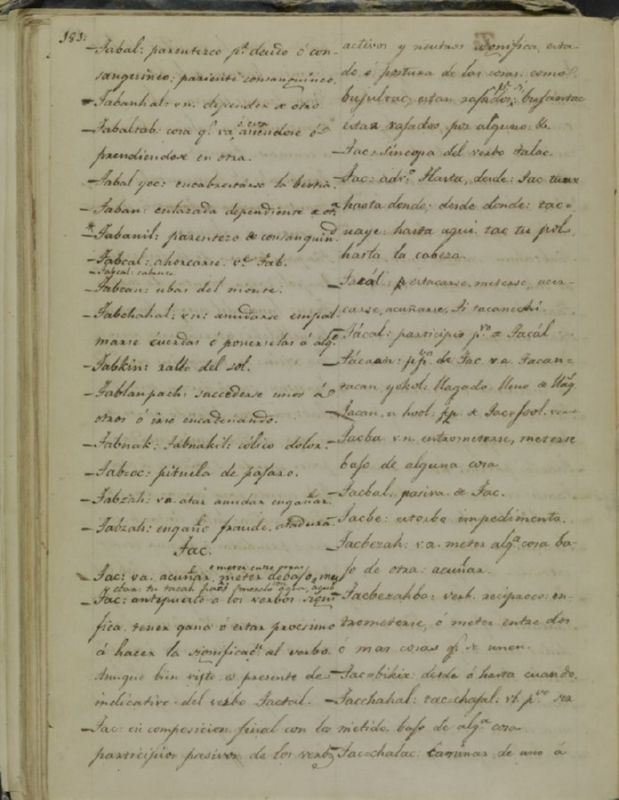 181.
-Tabal: parentezco pr. deudo ó con-
sanguineo: pariente consanguineo.
-Tabanhal: vn: depender de otro
ó esta
-Tabaltab: cosa q. va asiendose ó
prendiendose en otra.
-Tabal yoc: encabestrarse la bestia.
-Taban: enlazada dependiente de otr.
-Tabanil: parentezo de consanguind
-Tabcal: ahorcarse: Tab.
-Tabcal: cabestro
-Tabcan: ubas del monte.
-Tabchahal: vn: anudarse empal-
marse cuerdas ó ponerselas á alg.
-Tabkin: rallo del sol.
-Tablanpach: succederse unos á
otros ó irse encadenando.
-Tabnak: Tabnakil: cólico dolor.
-Tabzoc: pihuela de pajaro.
-Tabzah: va. atar anudar engañar.
-Tabzah: engaño fraude, atadura.
Tac.
ó meter entre
-Tac: va. acuñar, meter debajo,
-Tac: antepuesto a los verbos signi
fica tener gana ó estar procsimo
á hacer la significaçn. al verbo
Aunque bien visto es presente de
indicativo del verbo Tactal.
-Tac: en composicion final con los
participios pasivos de los verbs
activos y neutros significa, esta-
do ó postura de las cosas: como
estan rajados;
estar rajados, por alguno &.
-Tac: sincopa del verbo talac.
-Tac: advo. Hasta, desde: Tac tux
hasta donde: desde donde: tac-
uaye: hasta aqui tac tu pol
hasta la cabeza.
-Tacál: estacarse, meterse, acer-
carse, acuñarse,
-Tácal: participio po. de Tacál
-Tácaan: pp. de Tac. va. Tacan-
tacan yokol: llagado lleno de llag.
-Tacan, u hool: pp. de
-Tacba vn. entrometerse, meterse
bajo de alguna cosa
-Tacbal, pasiva de Tac.
-Tacbe: estorbo impedimento.
-Tacbezah: va. meter alga. cosa ba-
jo de otra: acuñar.
-Tacbezahba: verb. reciproco: en-
trometerse, ó meter entre dos
ó mas cosas q. se unen.
-Tac=bikix: desde ó hasta cuando.
-Tacchahal: tac-chajal. vt. po. ser
metido, bajo de alga. cosa
-Tac=chalac: caminar de uno á